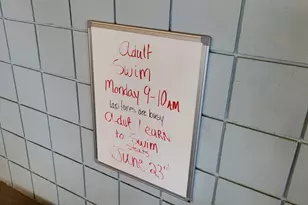 Adult
Swim
Monday 9-10AM
are busy
Adult LEARN
to Swim
Starts
June 23rd